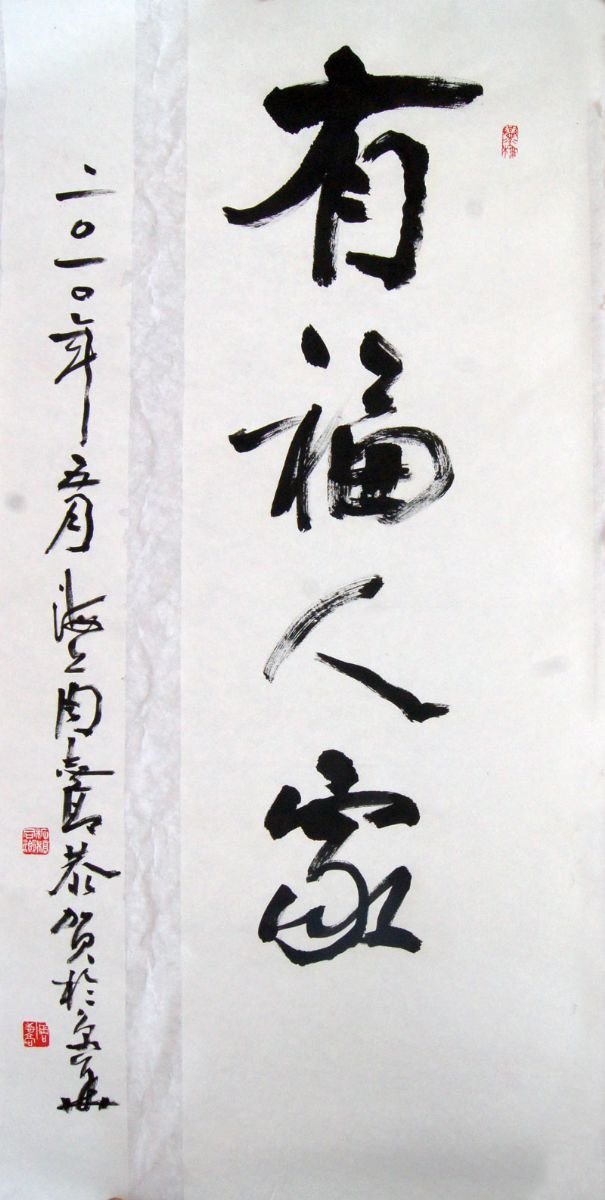 有福人家
二〇一〇年五月海上周 恭贺於京華